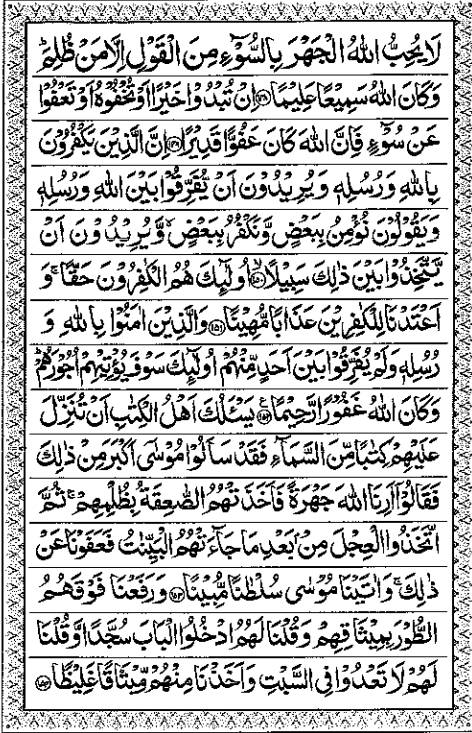 لَا يُحِبُّ اللّٰهُ الْجَهْرَ بِالسُّوْٓءِ مِنَ الْقَوْلِ اِلَّا مَنْ ظُلِمَ ؕ
وَكَانَ اللّٰهُ سَمِيْعًا عَلِيْمًا ﴿۱۴۸﴾ اِنْ تُبْدُوْا خَيْرًا اَوْ تُخْفُوْهُ اَوْ تَعْفُوْا
عَنْ سُوْٓءٍ فَاِنَّ اللّٰهَ كَانَ عَفُوًّا قَدِيْرًا ﴿۱۴۹﴾ اِنَّ الَّذِيْنَ يَكْفُرُوْنَ
بِاللّٰهِ وَرُسُلِهٖ وَيُرِيْدُوْنَ اَنْ يُّفَرِّقُوْا بَيْنَ اللّٰهِ وَرُسُلِهٖ
وَيَقُوْلُوْنَ نُؤْمِنُ بِبَعْضٍ وَّنَكْفُرُ بِبَعْضٍ ۙ وَّيُرِيْدُوْنَ اَنْ
يَّتَّخِذُوْا بَيْنَ ذٰلِكَ سَبِيْلًا ﴿۱۵۰﴾ۙ اُولٰٓئِكَ هُمُ الْكٰفِرُوْنَ حَقًّا ۚ وَ
اَعْتَدْنَا لِلْكٰفِرِيْنَ عَذَابًا مُّهِيْنًا ﴿۱۵۱﴾ وَالَّذِيْنَ اٰمَنُوْا بِاللّٰهِ وَ
رُسُلِهٖ وَلَمْ يُفَرِّقُوْا بَيْنَ اَحَدٍ مِّنْهُمْ اُولٰٓئِكَ سَوْفَ يُؤْتِيْهِمْ اُجُوْرَهُمْ ؕ
وَكَانَ اللّٰهُ غَفُوْرًا رَّحِيْمًا ﴿۱۵۲﴾ يَسْـَٔلُكَ اَهْلُ الْكِتٰبِ اَنْ تُنَزِّلَ
عَلَيْهِمْ كِتٰبًا مِّنَ السَّمَآءِ فَقَدْ سَاَلُوْا مُوْسٰٓى اَكْبَرَ مِنْ ذٰلِكَ
فَقَالُوْٓا اَرِنَا اللّٰهَ جَهْرَةً فَاَخَذَتْهُمُ الصّٰعِقَةُ بِظُلْمِهِمْ ۚ ثُمَّ
اتَّخَذُوا الْعِجْلَ مِنْۢ بَعْدِ مَا جَآءَتْهُمُ الْبَيِّنٰتُ فَعَفَوْنَا عَنْ
ذٰلِكَ ۚ وَاٰتَيْنَا مُوْسٰى سُلْطٰنًا مُّبِيْنًا ﴿۱۵۳﴾ وَرَفَعْنَا فَوْقَهُمُ
الطُّوْرَ بِمِيْثَاقِهِمْ وَقُلْنَا لَهُمُ ادْخُلُوا الْبَابَ سُجَّدًا وَّقُلْنَا
لَهُمْ لَا تَعْدُوْا فِى السَّبْتِ وَاَخَذْنَا مِنْهُمْ مِّيْثَاقًا غَلِيْظًا ﴿۱۵۴﴾